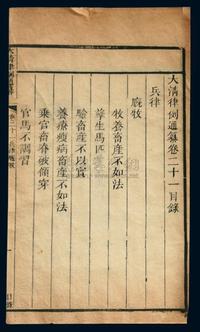 大清律例通纂卷二十一目錄
兵律
廐牧
牧養畜産不如法
孳生馬匹
驗畜産不以實
養療瘦病畜産不如法
乘官畜脊破領穿
官馬不調習